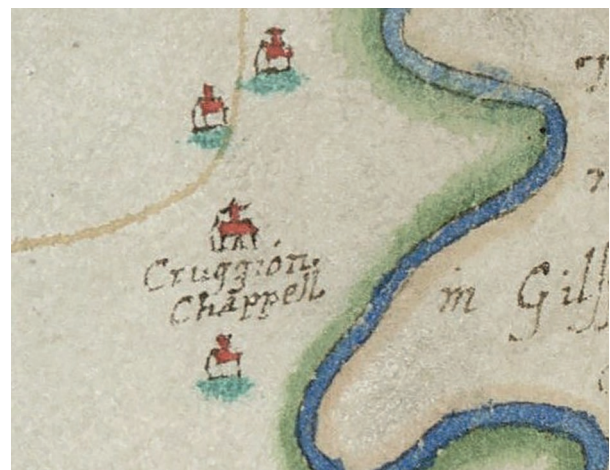 Cruggion
Chappell
in